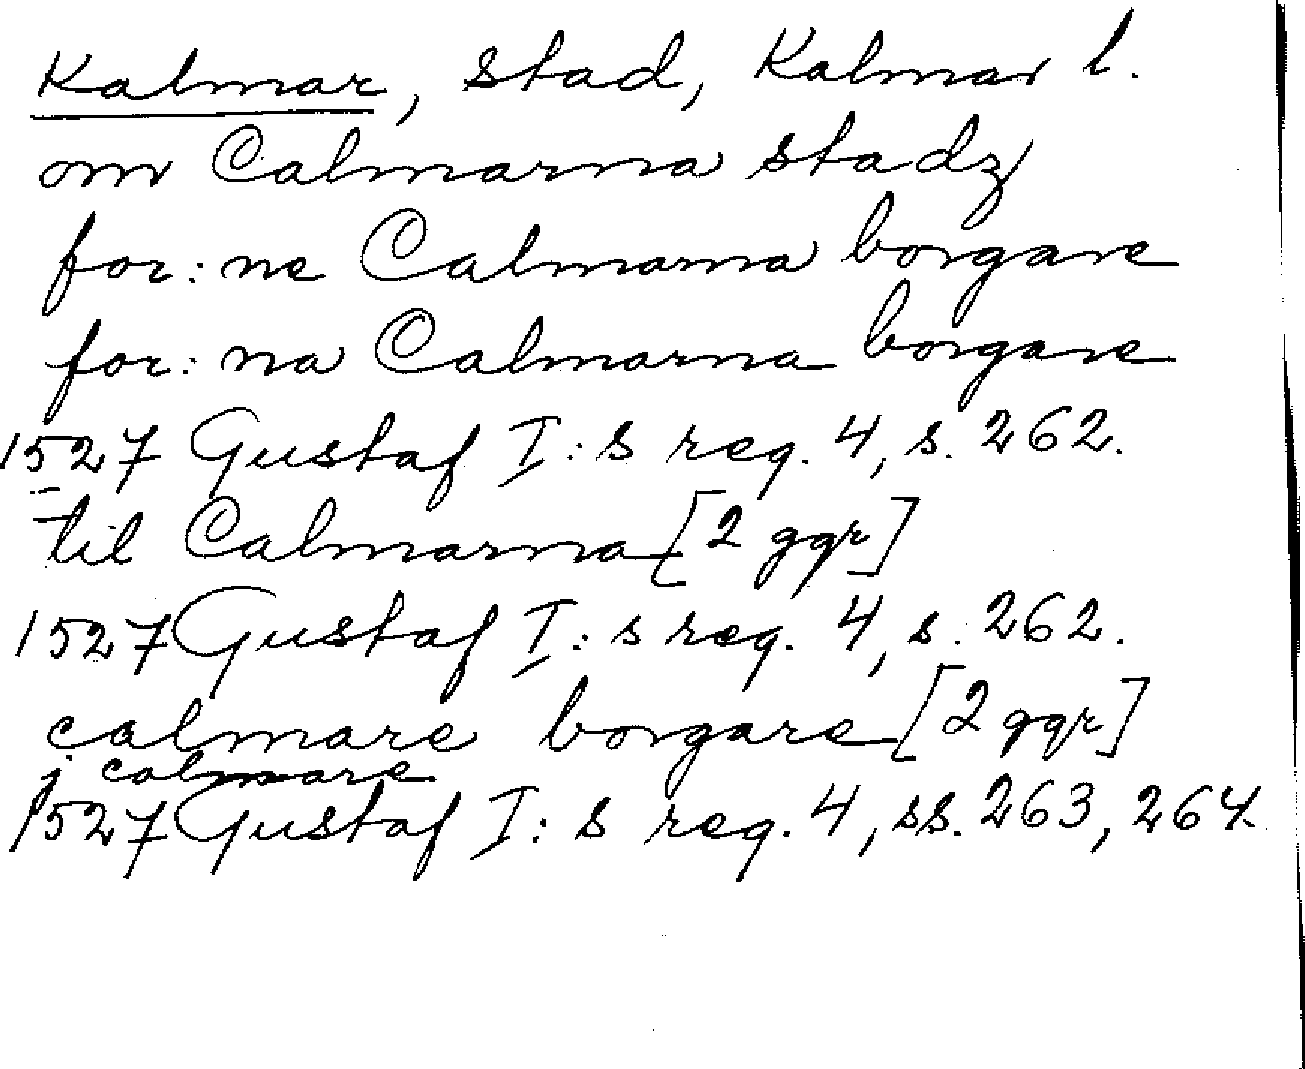 Kalmar, stad, Kalmar l.
om Calmarna stadz
for: ne Calmarna borgare
for: na Calmarna borgare
1527 Gustaf I: s reg. 4, s. 262.
til Calmarna [2 ggr]
1527 Gustaf I: s reg. 4, s. 262.
calmare borgare [2 ggr]
j calmare
1527 Gustaf I: s reg. 4, ss. 263, 264.